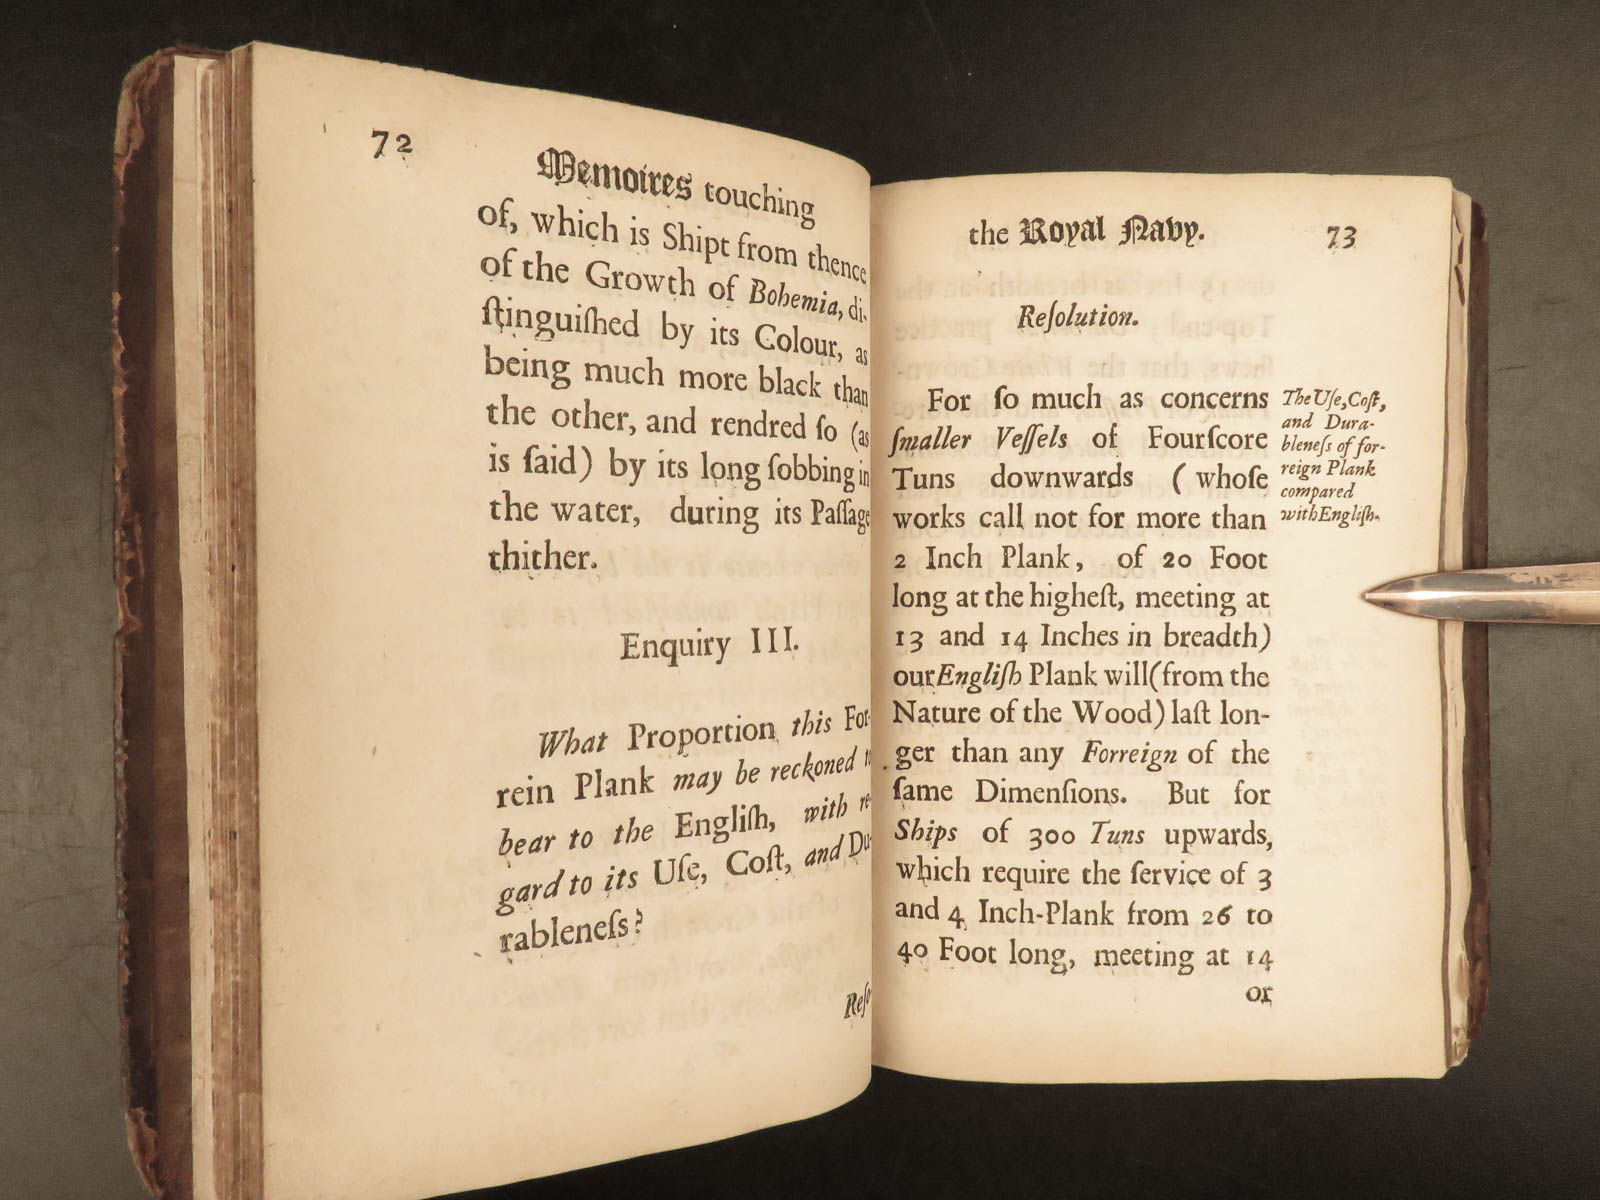 72
Memoires touching
of, which is Shipt from thence
of the Growth of Bohemia, di-
ſtinguiſhed by its Colour, as
being much more black than
the other, and rendred ſo (as
is ſaid) by its long ſobbing in
the water, during its Paſſage
thither.
Enquiry III.
What Proportion this For-
rein Plank may be reckoned
bear to the Engliſh, with re-
gard to its Uſe, Coſt, and Du-
rableneſs?
Reſo-
the Royal Navy.
73
Reſolution.
For ſo much as concerns
ſmaller Veſſels of Fourſcore
Tuns downwards (whoſe
works call not for more than
2 Inch Plank, of 20 Foot
long at the higheſt, meeting at
13 and 14 Inches in breadth)
our Engliſh Plank will (from the
Nature of the Wood) laſt lon-
ger than any Forreign of the
ſame Dimenſions. But for
Ships of 300 Tuns upwards,
which require the ſervice of 3
and 4 Inch-Plank from 26 to
40 Foot long, meeting at 14
or
The Uſe, Coſt,
and Dura-
bleneſs of for-
reign Plank
compared
with Engliſh.